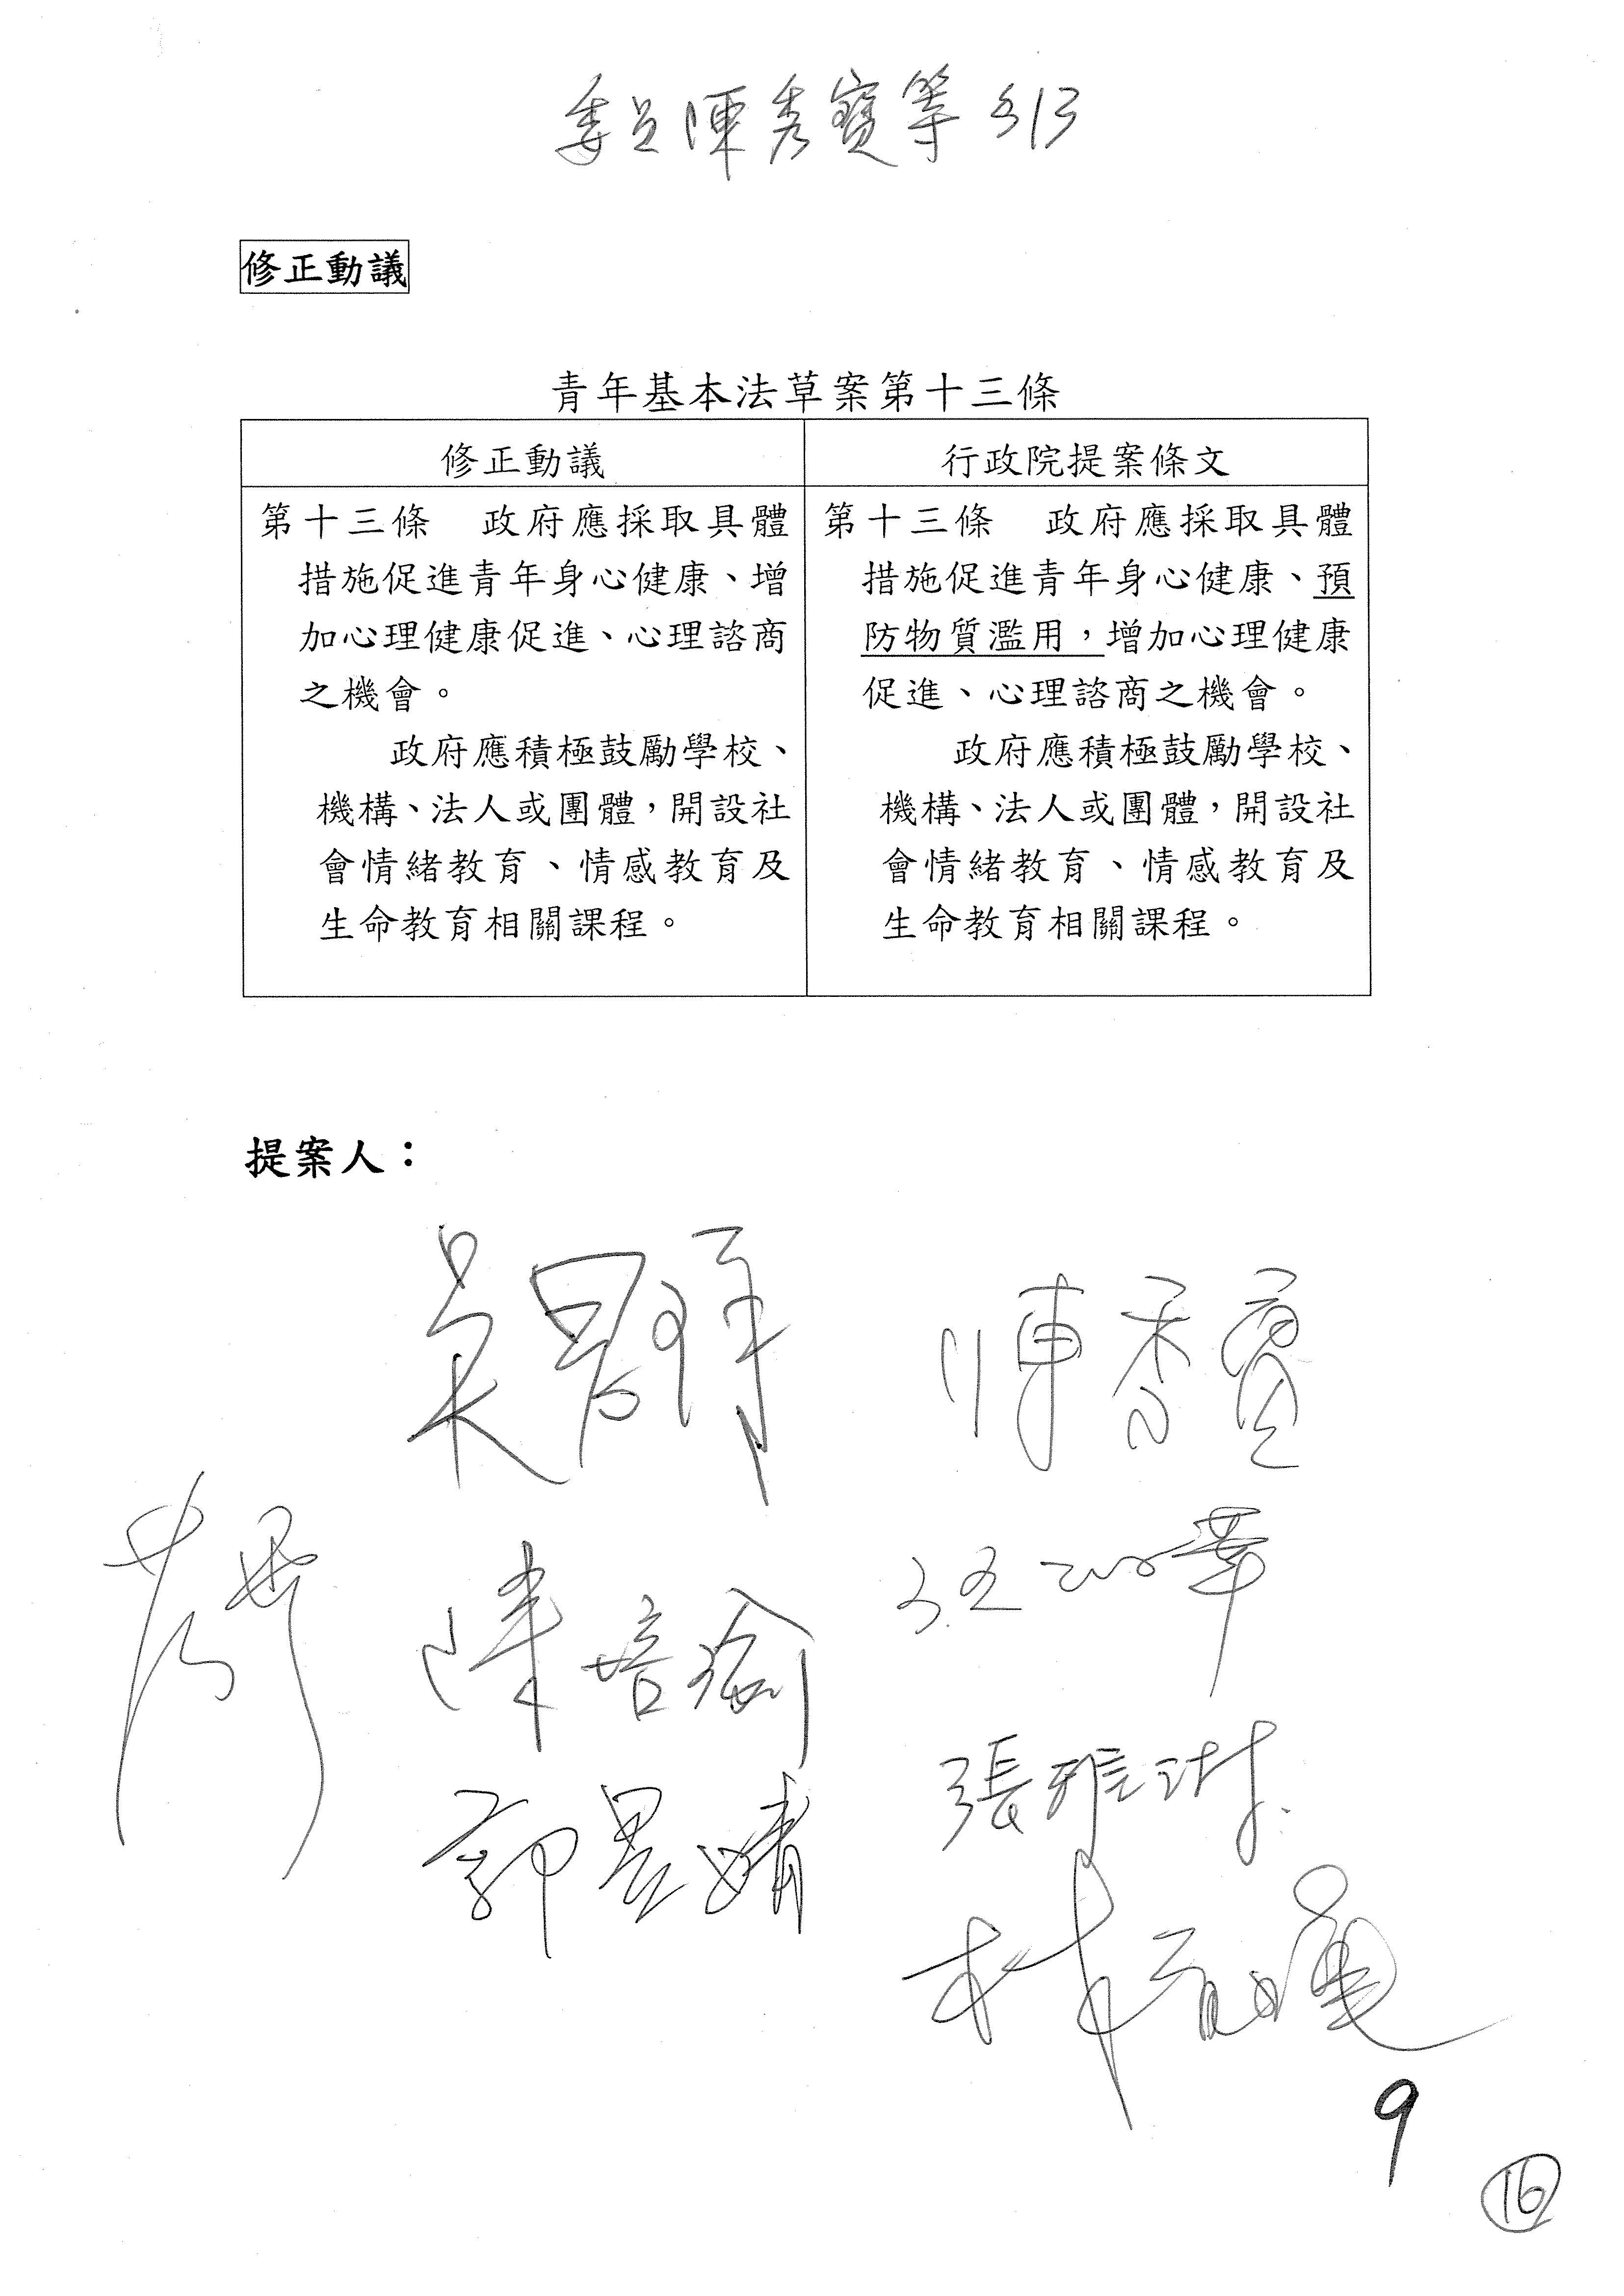 委員陳秀寶等 §13
修正動議
青年基本法草案第十三條
修正動議
行政院提案條文
第十三條　政府應採取具體
措施促進青年身心健康、增
加心理健康促進、心理諮商
之機會。
政府應積極鼓勵學校、
機構、法人或團體，開設社
會情緒教育、情感教育及
生命教育相關課程。
第十三條　政府應採取具體
措施促進青年身心健康、預
防物質濫用，增加心理健康
促進、心理諮商之機會。
政府應積極鼓勵學校、
機構、法人或團體，開設社
會情緒教育、情感教育及
生命教育相關課程。
提案人：
陳秀寶
陳培瑜
張雅琳
郭昱晴
9
16